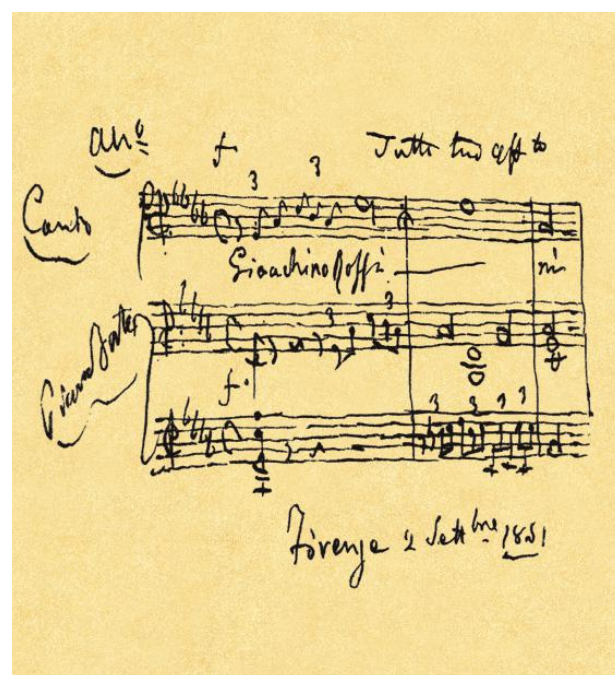 All.º
f
Tutto tuo aff to
3 3
Canto
Gioachino Rossi
ni
3 3
Piano Forte
f.
3 3 3 3
Firenze 2 Settbre 1851